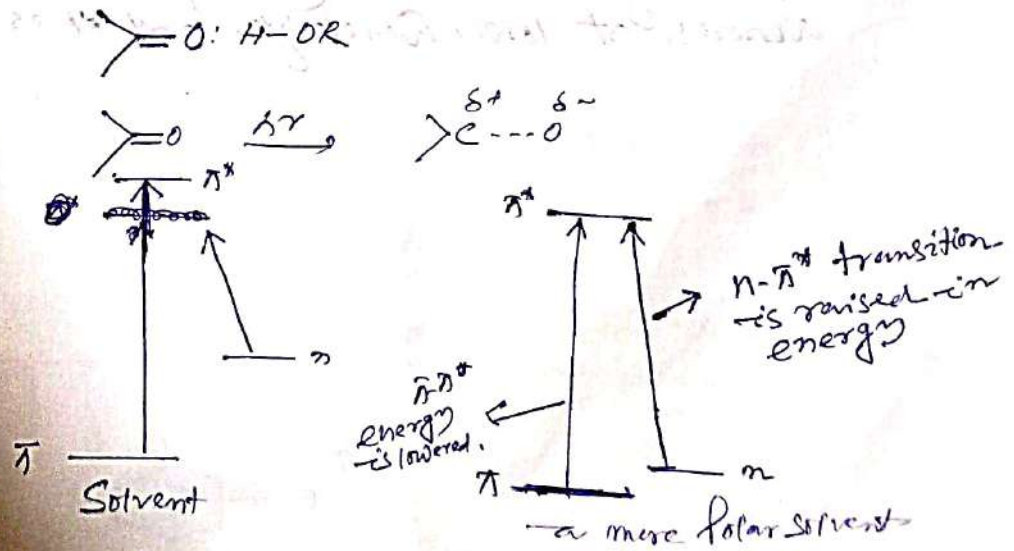 =O: H-OR
=O hν → >C---O
δ+ δ-
π*
π*
n
π
Solvent
π*
n-π* transition
is raised in
energy
π-π*
energy
is lowered.
π
n
a more Polar Solvent